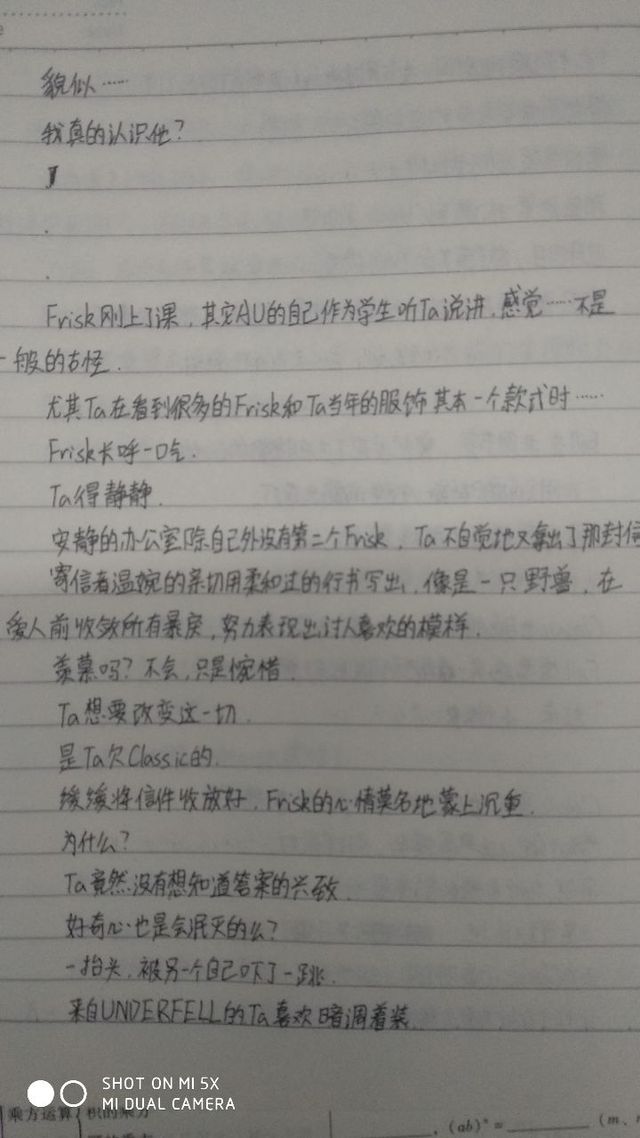 貌似……
我真的认识他？
.
.
Frisk刚上了课，其它AU的自己作为学生听Ta说讲，感觉……不是
一般的古怪.
尤其Ta在看到很多的Frisk和Ta当年的服饰其本一个款式时……
Frisk长呼一口气.
Ta得静静.
安静的办公室除自己外没有第二个Frisk，Ta不自觉地又拿出了那封信
寄信者温婉的亲切用柔和过的行书写出，像是一只野兽，在
爱人前收敛所有暴戾，努力表现出讨人喜欢的模样.
羡慕吗？不会，只是惋惜.
Ta想要改变这一切.
是Ta欠Classic的.
缓缓将信件收放好，Frisk的心情莫名地蒙上沉重.
为什么？
Ta竟然没有想知道答案的兴致.
好奇心也是会泯灭的么？
一抬头，被另一个自己吓了一跳.
来自UNDERFELL的Ta喜欢暗调着装.
SHOT ON MI 5X
MI DUAL CAMERA
乘方运算 积的乘方
(ab)ⁿ = (m、